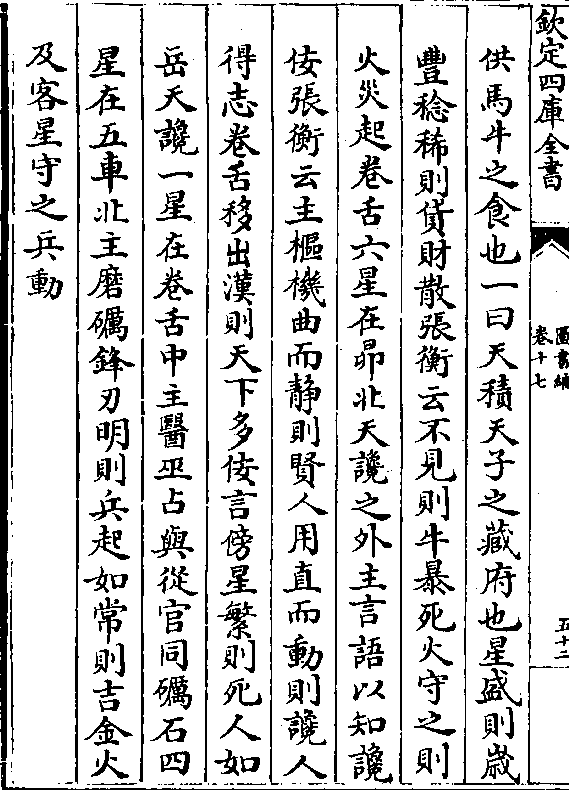 欽定四庫全書
圖書編
卷十七
五十二
供馬牛之食也一曰天積天子之藏府也星盛則歲
豐稔稀則貨財散張衡云不見則牛暴死火守之則
火災起卷舌六星在昴北天讒之外主言語以知讒
佞張衡云主樞機曲而静則賢人用直而動則讒人
得志卷舌移出漢則天下多佞言傍星繁則死人如
岳天讒一星在卷舌中主醫巫占與從官同礪石四
星在五車北主磨礪鋒刃明則兵起如常則吉金火
及客星守之兵動